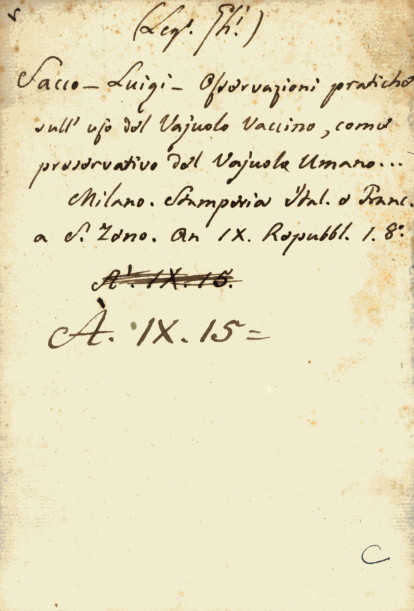 (Leg. Gh!)
Sacco - Luigi - Osservazioni pratiche
sull' uso del Vajuolo Vaccino, come
preservativo del Vajuolo Umano...
Milano. Stamperia Ital. e Franc.
a S. Zeno. An IX. Repubbl. 1. 8.°
A'. IX. 15.
À. IX. 15=
C